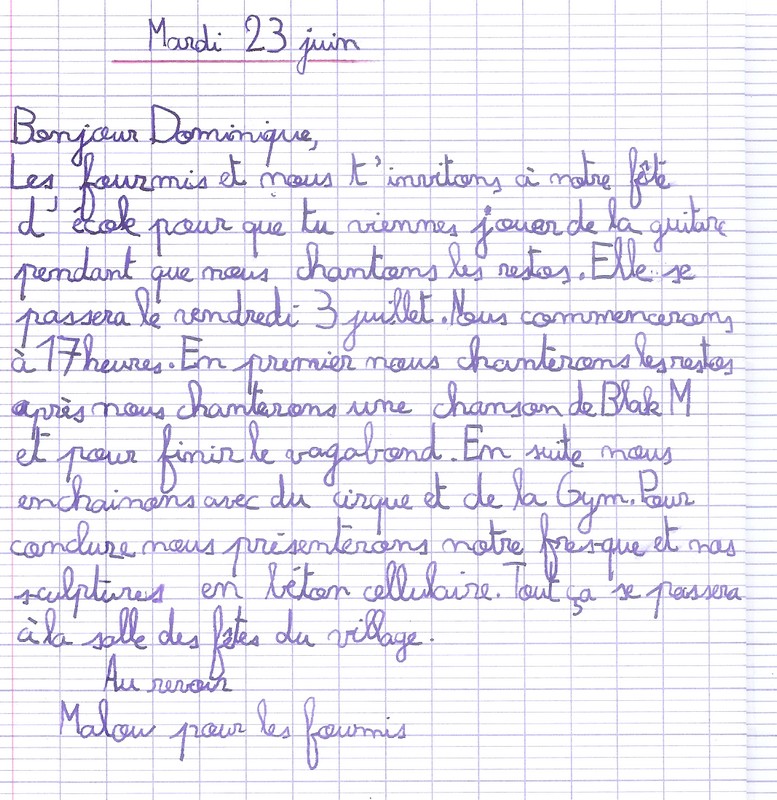 Mardi 23 juin
Bonjour Dominique,
Les fourmis et nous t'invitons à notre fête
d'école pour que tu viennes jouer de la guitare
pendant que nous chantons les restos. Elle se
passera le vendredi 3 juillet. Nous commencerons
à 17 heures. En premier nous chanterons les restos
après nous chanterons une chanson de Blak M
et pour finir le vagabond. En suite nous
enchainons avec du cirque et de la Gym. Pour
conclure nous présenterons notre fresque et nos
sculptures en béton cellulaire. Tout ça se passera
à la salle des fêtes du village.
Au revoir
Malou pour les fourmis